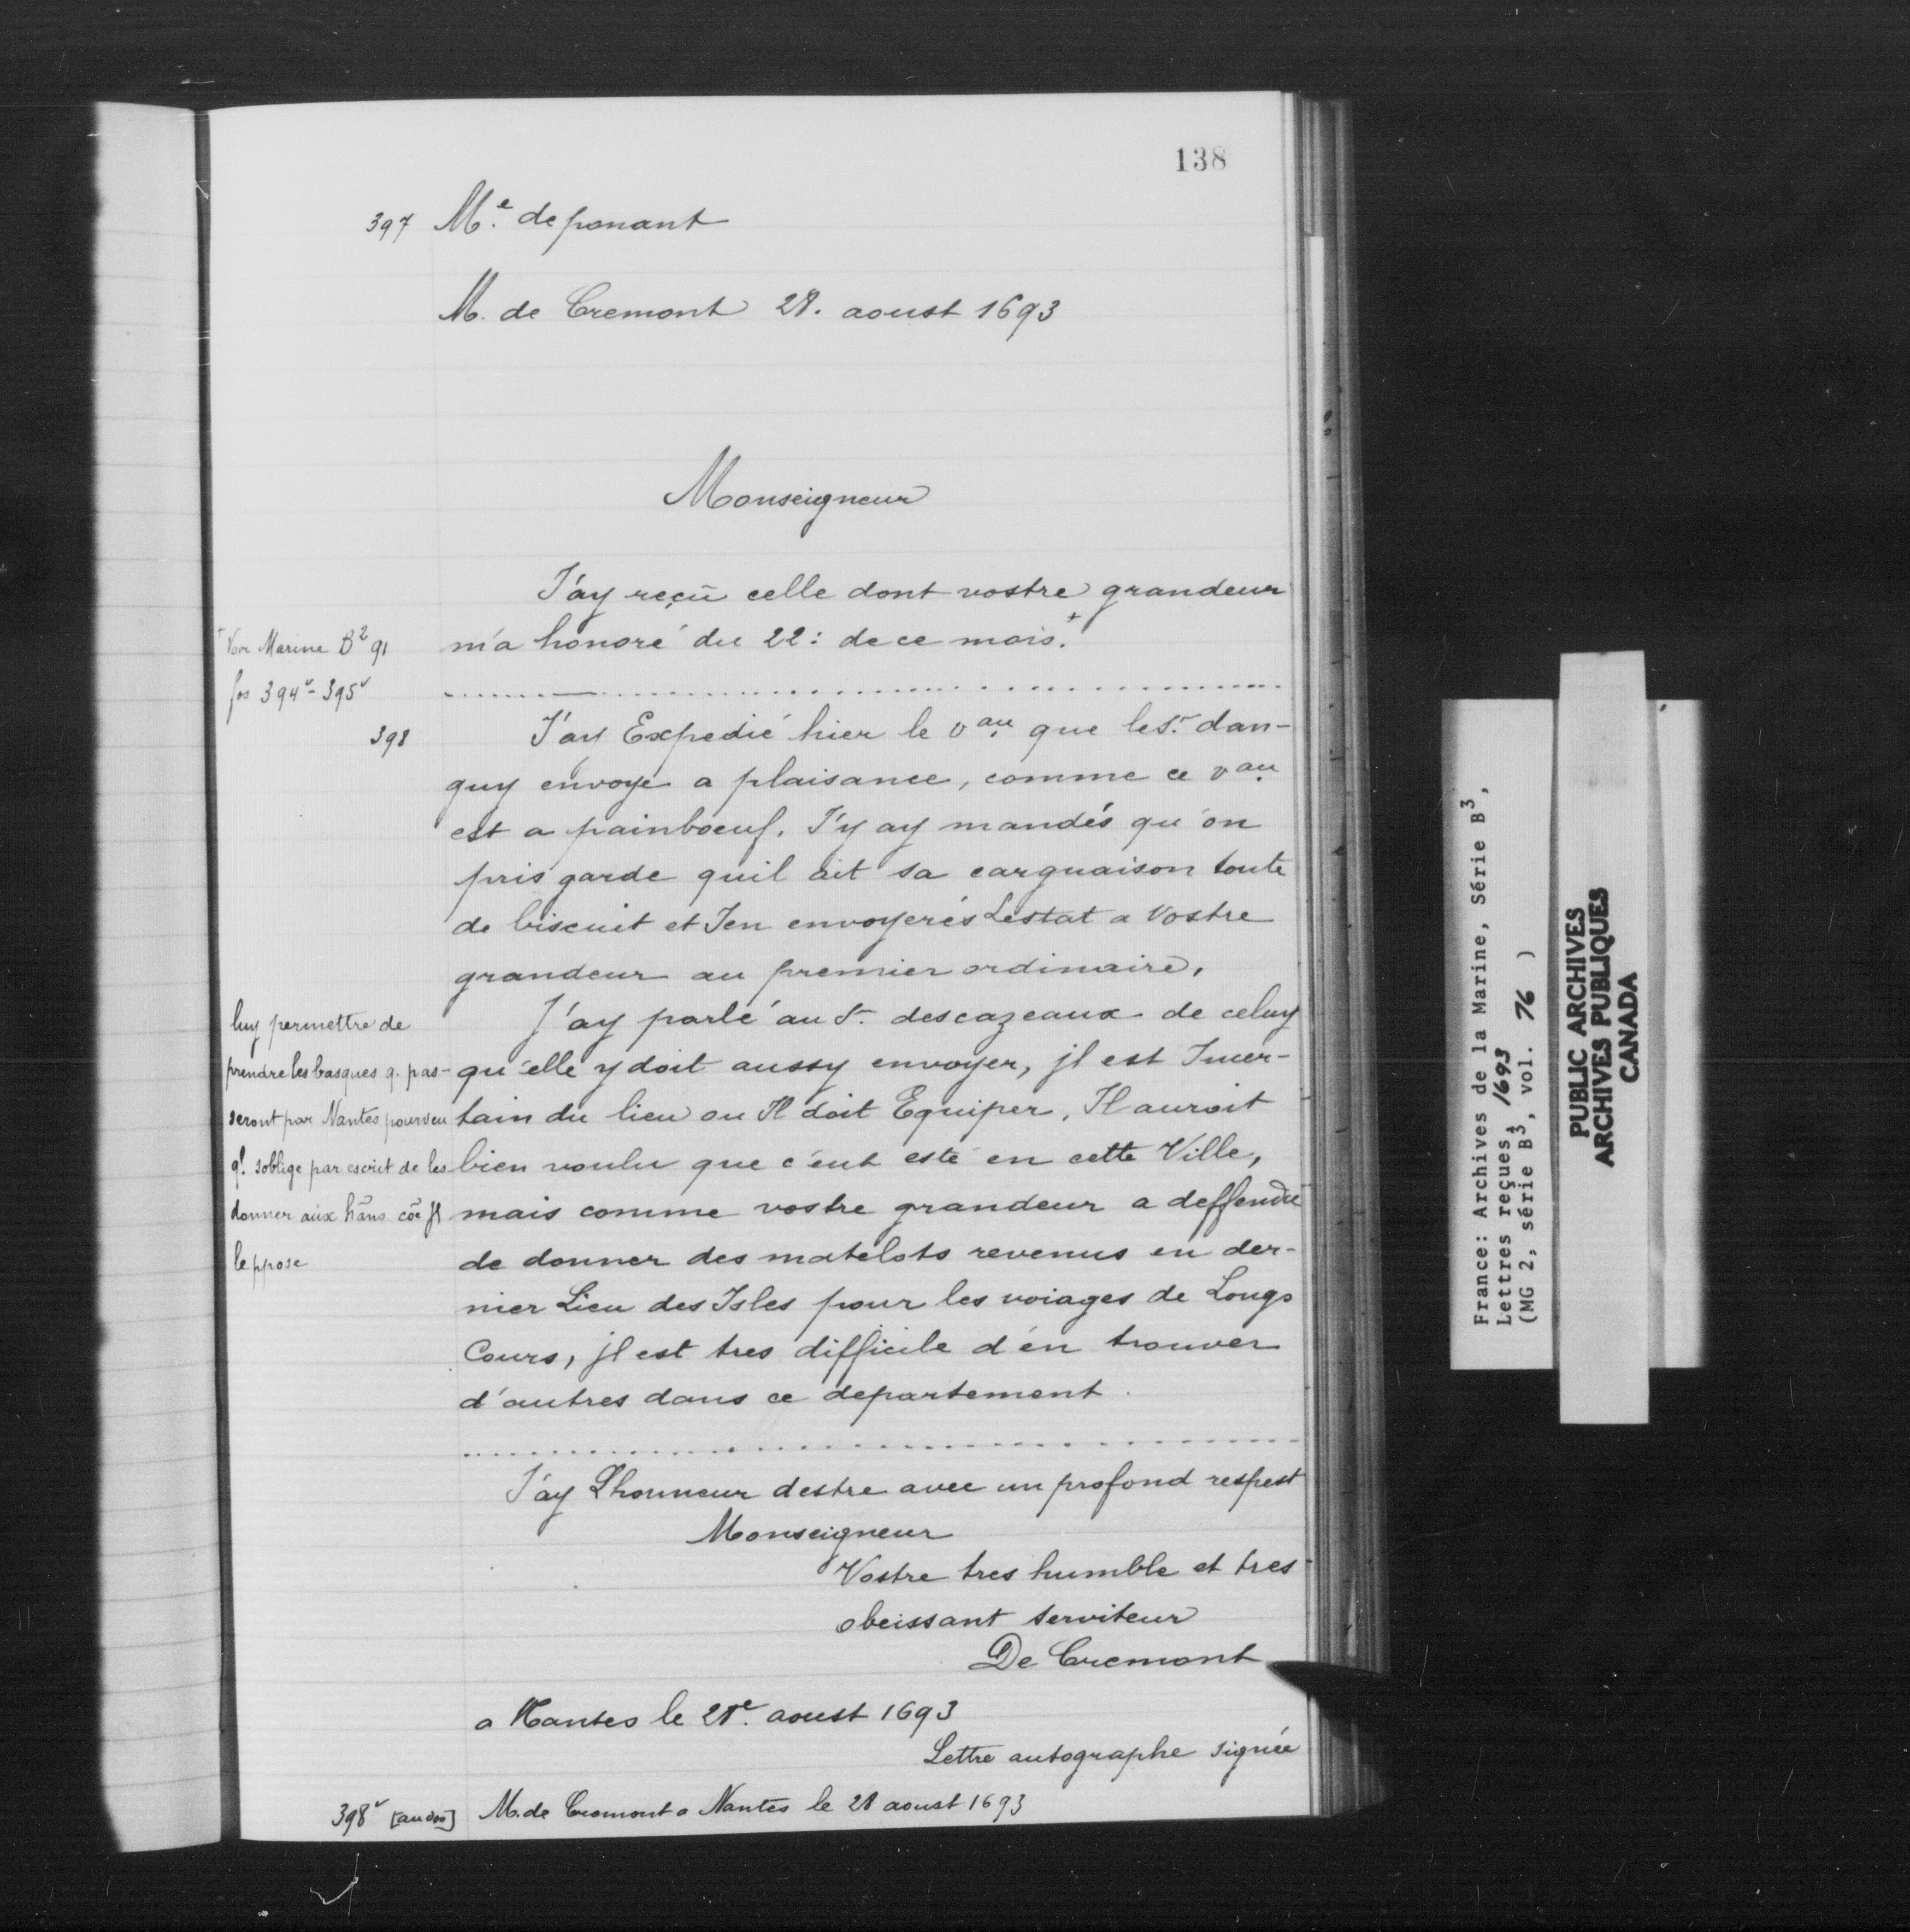 138
397 M.e de ponant
M. de Cremont 28. aoust 1693
Monseigneur
J'ay reçu celle dont vostre grandeur
m'a honoré du 22: de ce mois.+
+ Voir Marine B2 91
fos 394v - 395v
398
J'ay Expedié hier le vau que le Sr. dan-
guy envoye a plaisance, comme ce vau
est a painboeuf. J'y ay mandés qu'on
pris garde quil ait sa carguaison toute
de biscuit et Jen envoyerés Lestat a Vostre
grandeur au premier ordinaire,
J'ay parlé au Sr. descazeaux de celuy
qu'elle y doit aussy envoyer, jl est Incer-
tain du lieu ou Il doit Equiper, Il auroit
bien voulu que c'eut esté en cette Ville,
mais comme vostre grandeur a deffendu
de donner des matelots revenus en der-
nier Lieu des Isles pour les voiages de Longs
Cours, jl est tres difficile d'en trouver
d'autres dans ce departement.
luy permettre de
prendre les basques q. pas-
seront par Nantes pourveu
ql. soblige par escrit de les
donner aux hãns cõe Jl
le ppose
J'ay Lhonneur destre avec un profond respest
Monseigneur
Vostre tres humble et tres
obeissant serviteur
De Cremont
a Nantes le 28e. aoust 1693
Lettre autographe signée
398v [au dos] M. de Cremont a Nantes le 28 aoust 1693
France: Archives de la Marine, Série B3,
Lettres reçues, 1693
(MG 2, série B3, vol. 76 )
PUBLIC ARCHIVES
ARCHIVES PUBLIQUES
CANADA